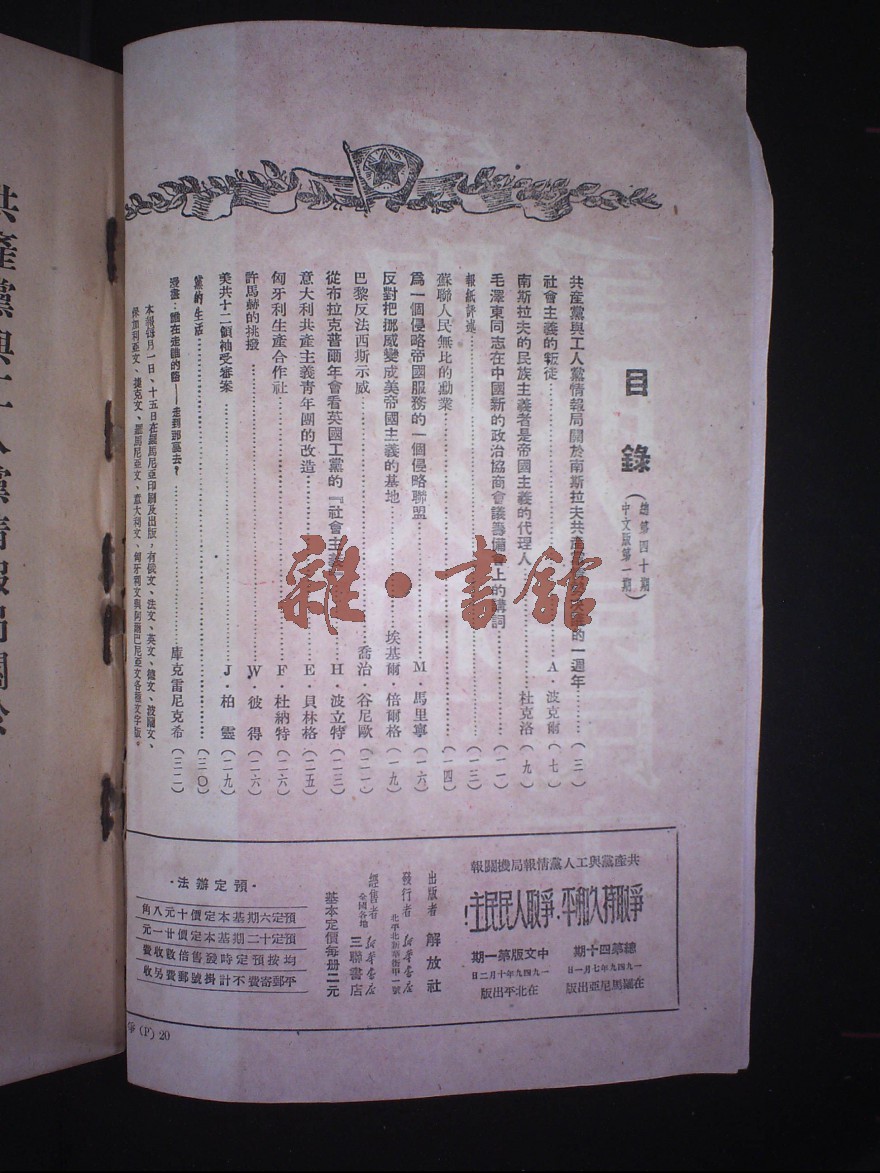 目錄
（總第四十期
中文版第一期）
共產黨與工人黨情報局關於南斯拉夫共產黨 的一週年（三）
社會主義的叛徒 A·波克爾（七）
南斯拉夫的民族主義者是帝國主義的代理人 杜克洛（九）
毛澤東同志在中國新的政治協商會議籌備會上的講詞（一一）
報紙評述（一三）
蘇聯人民無比的勳業（一四）
爲一個侵略帝國服務的一個侵略聯盟 M·馬里寧（一六）
反對把挪威變成美帝國主義的基地 埃基爾·倍爾格（一九）
巴黎反法西斯示威 喬治·谷尼歐（二一）
從布拉克普爾年會看英國工黨的『社會主義 H·波立特（二三）
意大利共產主義青年團的改造 E·貝林格（二五）
匈牙利生產合作社 F·杜納特（二六）
許馬赫的挑撥 W·彼得（二六）
美共十二領袖受審案 J·柏靈（二九）
黨的生活（三〇）
漫畫：誰在走誰的路——走到那裏去？ 庫克雷尼克希（三二）
本報每月一日、十五日在羅馬尼亞印刷及出版，有俄文、法文、英文、德文、波蘭文、
保加利亞文、捷克文、羅馬尼亞文、意大利文、匈牙利文與阿爾巴尼亞文各種文字版。
雜·書館
共產黨與工人黨情報局機關報
爭取持久和平，爭取人民民主！
總第四十期
一九四九年七月一日
在羅馬尼亞出版
中文版第一期
一九四九年十月二日
在北平出版
出版者 解放社
發行者 新華書店
北平北新華街甲一號
經售者 全國各地
新華書店
三聯書店
基本定價每册二元
·預定辦法·
預定六期基本定價十元八角
預定十二期基本定價廿一元
均按預定時發售倍數收費
平郵寄費不計掛號郵費另收
(P) 20
共產黨與工人黨情報局關於